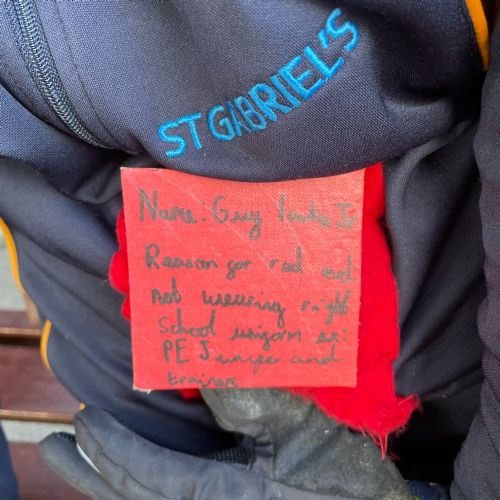 ST GABRIEL'S
Name: Guy Fawkes Jr
Reason for red card
not wearing right
school uniform ex:
PE Jumper and
trainers